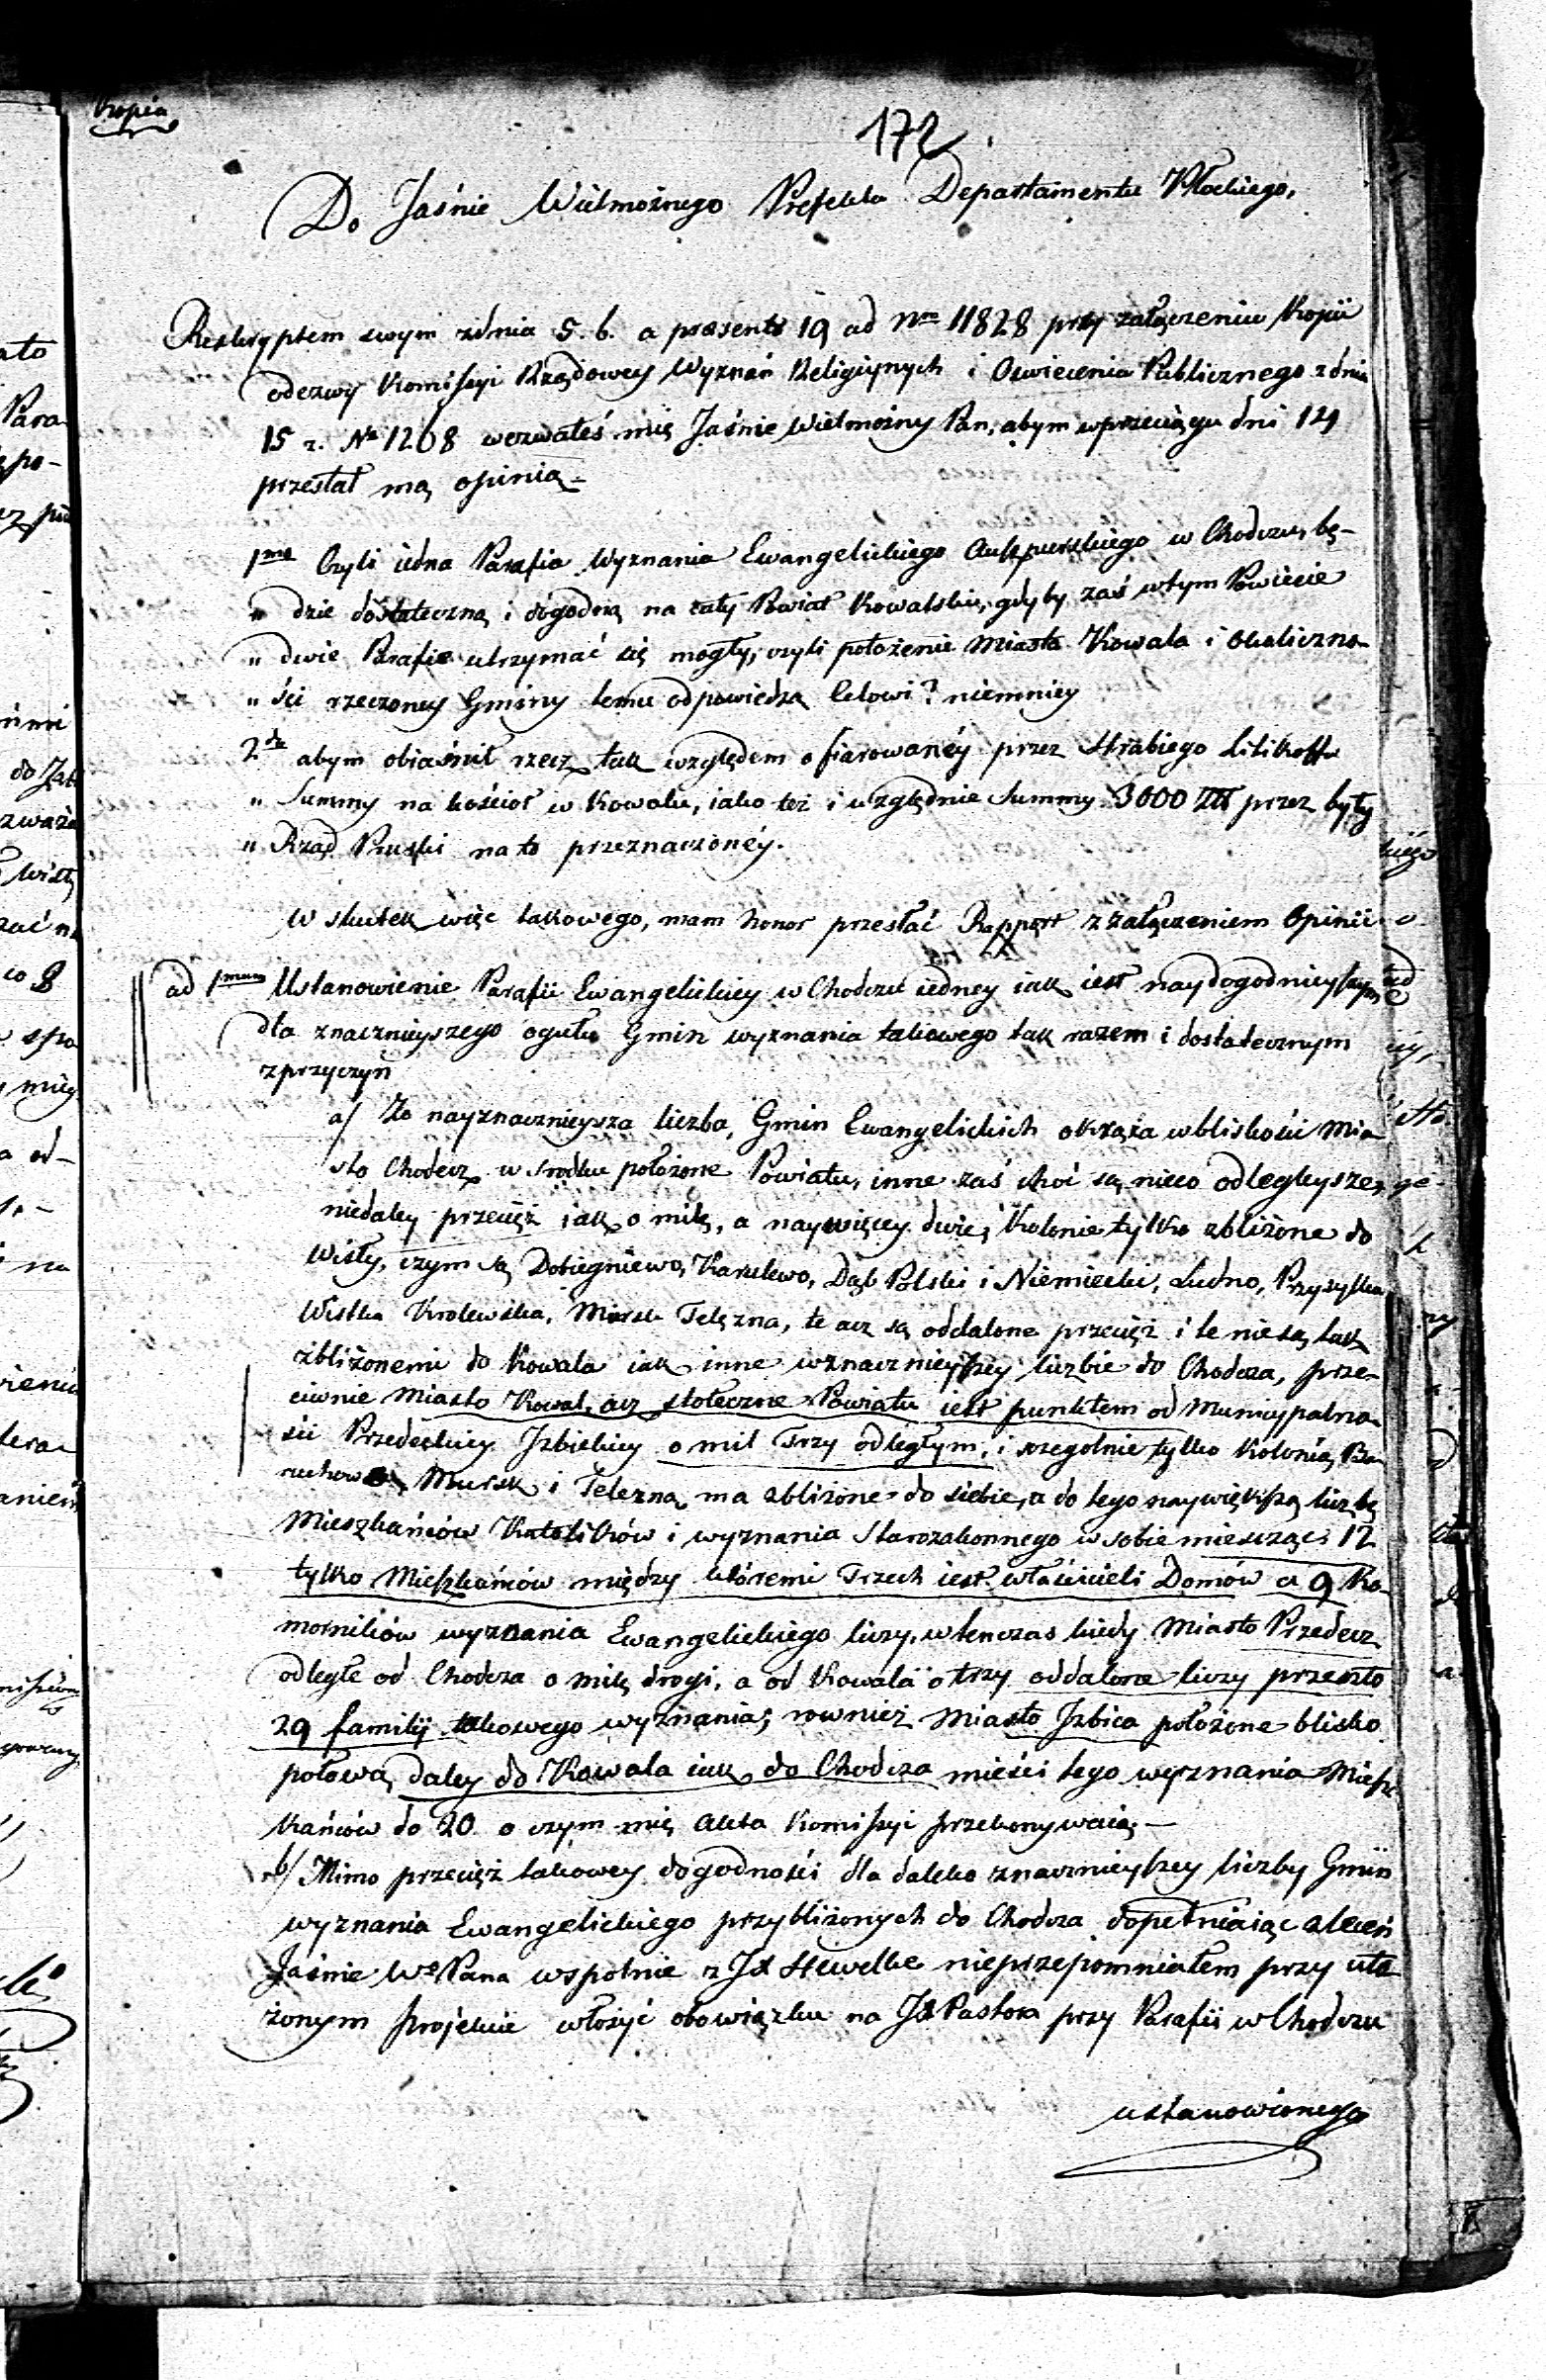 Kopia
172
Do Jaśnie Wielmożnego Prefekta Departamentu Płockiego,
Reskryptem swym zdnia 5. b. a praesent: 19 ad Nrm 11828 przy załączeniu Kopii
odezwy Komissyi Rządowey Wyznań Religiynych i Oswiecenia Publicznego z dnia
15 r. No 1208 wezwałeś mię Jaśnie Wielmożny Pan, abym wprzeciągu dni 14
przesłał mą opinią =
1mo Czyli iedna Parafia Wyznania Ewangelickiego Auszpurskiego w Chodczu, bę-
" dzie dostateczną i dogodną na cały Powiat Kowalski, gdyby zaś wtym Powiecie
" dwie Parafie utrzymać się mogły, czyli położenie Miasta Kowala i okoliczno-
" ści rzeczoney Gminy temu odpowiedzą Celowi? niemniey
2do abym obiaśnił rzecz tak względem ofiarowanéy przez Hrabiego
" Summy na kościoł w Kowalu, iako też i względnie Summy 3000 przez były
" Rząd Pruski na to przeznaczonéy.
W skutek więc takowego, mam honor przesłać Rapport z załączeniem Opinii
ad 1mum Ustanowienie Parafii Ewangelickiey w Chodczu iedney iak iest naydogodnieyszym
dla znacznieyszego ogułu Gmin wyznania takowego tak razem i dostatecznym
zprzyczyn
a/ Że nayznacznieysza liczba, Gmin Ewangelickich okrąża wbliskości Mia-
sto Chodecz w srodku położone Powiatu, inne zaś choć są nieco odlegleysze,
niedaley przecięż iak o milę, a naywięcey dwie, Kolonie tylko zbliżone do
Wisły, czym są Dobiegniewo, Karulewo, Dąb Polski i Niemiecki, Ludno, Przysypka
Wistka Krolewska, Mursk Telązna, te acz są oddalone przecięż i te niesą tak
zbliżonemi do Kowala iak inne wznacznieyszey liczbie do Chodcza, prze-
ciwnie Miasto Kowal, acz stołeczne Powiatu iest punktem od Municypalno-
ści Przedeckiey Izbickiey o mil Trzy odległym, i szegolnie tylko Kolonią Ba-
Mursk i Telezna, ma zbliżone do siebie, a do tego naywiększą liczbę
Mieszkańców Katolików i wyznania Starozakonnego w sobie mieszcząc, 12
tylko Mieszkańców między któremi Trzech iest właścicieli Domów a 9 Ko-
morników wyznania Ewangelickiego liczy, w tenczas kiedy Miasto Przedecz
odległe od Chodcza o milę drogi, a od Kowala o trzy oddalone liczy przeszło
29 familij takowego wyznania; rownież Miasto Izbica położone blisko
połową daley do Kowala iak do Chodcza mieści tego wyznania Miesz-
kańców do 20 o czym mię Akta Komissyi przekonywaią —
b/ Mimo przecięż takowey dogodności dla daleko znacznieyszey liczby Gmin
wyznania Ewangelickiego przybliżonych do Chodcza dopełniaiąc zleceń
Jaśnie We Pana wspolnie z JX Hewelke nieprzepomniałem przy uło-
żonym projekcie włożyć obowiązku na JX Pastora przy Parafii w Chodczu
ustanowionego